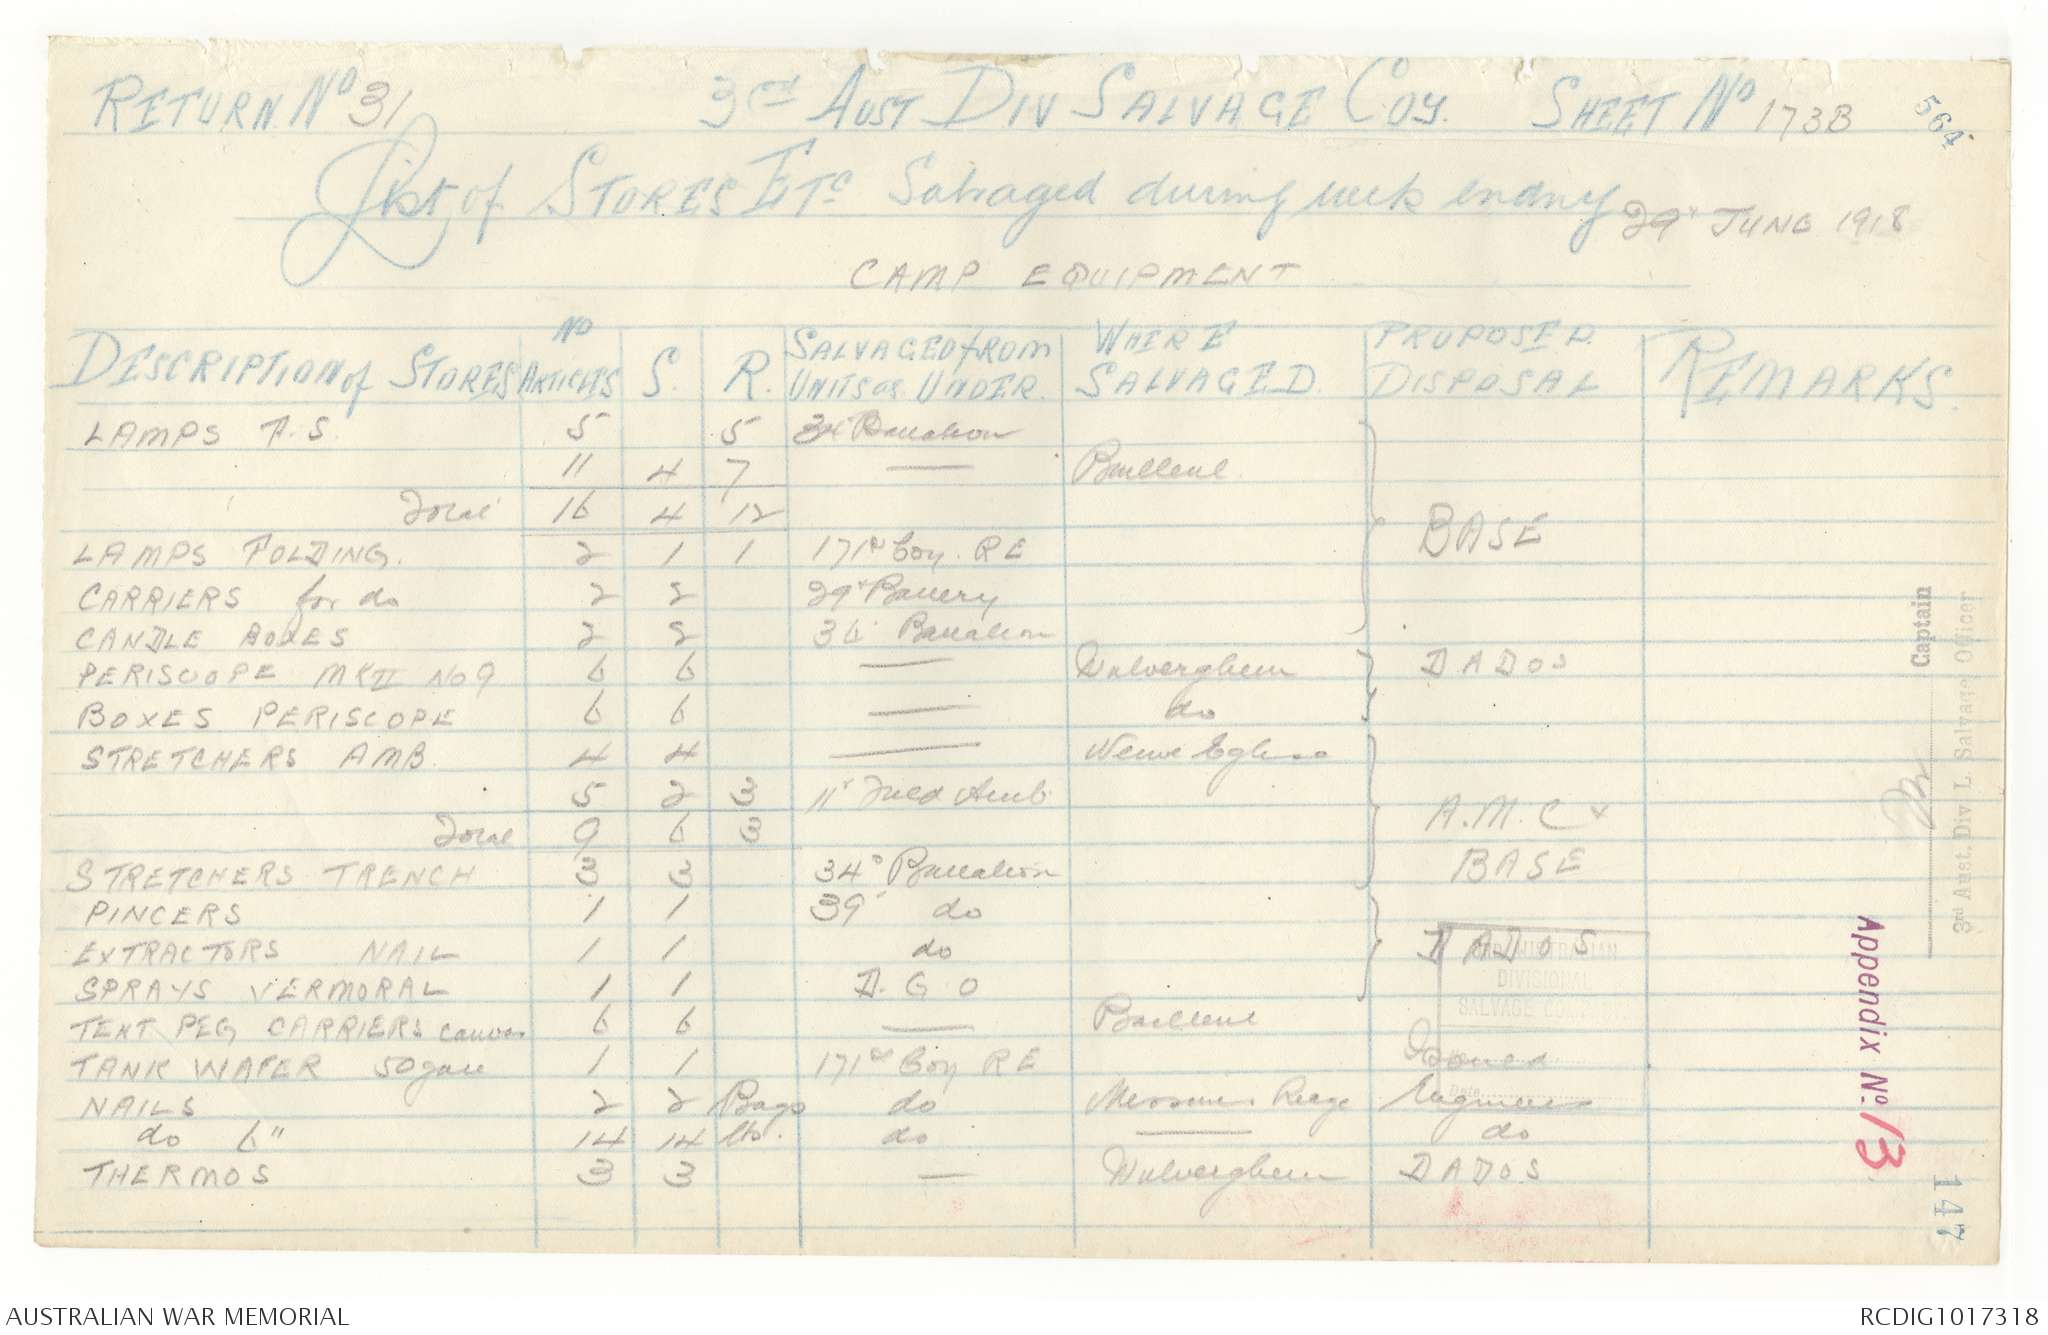 RETURN No 31 3rd AUST DIV SALVAGE COY. SHEET No 173B 564
List of STORES ETC Salvaged during week ending 29th JUNE 1918
CAMP EQUIPMENT
DESCRIPTION of STORES No ARTICLES S. R. SALVAGED from UNITS or UNDER. WHERE SALVAGED. PROPOSED DISPOSAL REMARKS.
LAMPS F.S. 5 5 Battalion
11 4 7 — Bailleul
Total 16 4 12 BASE
LAMPS FOLDING. 2 1 1 171st Coy. RE
CARRIERS for do 2 2 29th Battery
CANDLE BOXES 2 2 36 Battalion
PERISCOPE MK II No 9 6 6 — Wulverghem DADOS
BOXES PERISCOPE 6 6 — do
STRETCHERS AMB. 4 4 — Neuve Eglise
5 2 3 11th Field Amb
Total 9 6 3 A.M.C +
STRETCHERS TRENCH 3 3 34th Battalion BASE
PINCERS 1 1 39th do
EXTRACTORS NAIL 1 1 do DADOS
SPRAYS VERMORAL 1 1 D.G.O
TENT PEG CARRIERS canvas 6 6 — Bailleul
TANK WATER 50 gall 1 1 171st Coy RE Issued
NAILS 2 2 Bags do Messines Ridge Engineers
do 6" 14 14 lbs. do — do
THERMOS 3 3 — Wulverghem DADOS
Captain
3rd Aust. Div L. Salvage Officer
AUSTRALIAN
DIVISIONAL
SALVAGE
Date
Appendix No. 13
147
AUSTRALIAN WAR MEMORIAL RCDIG1017318